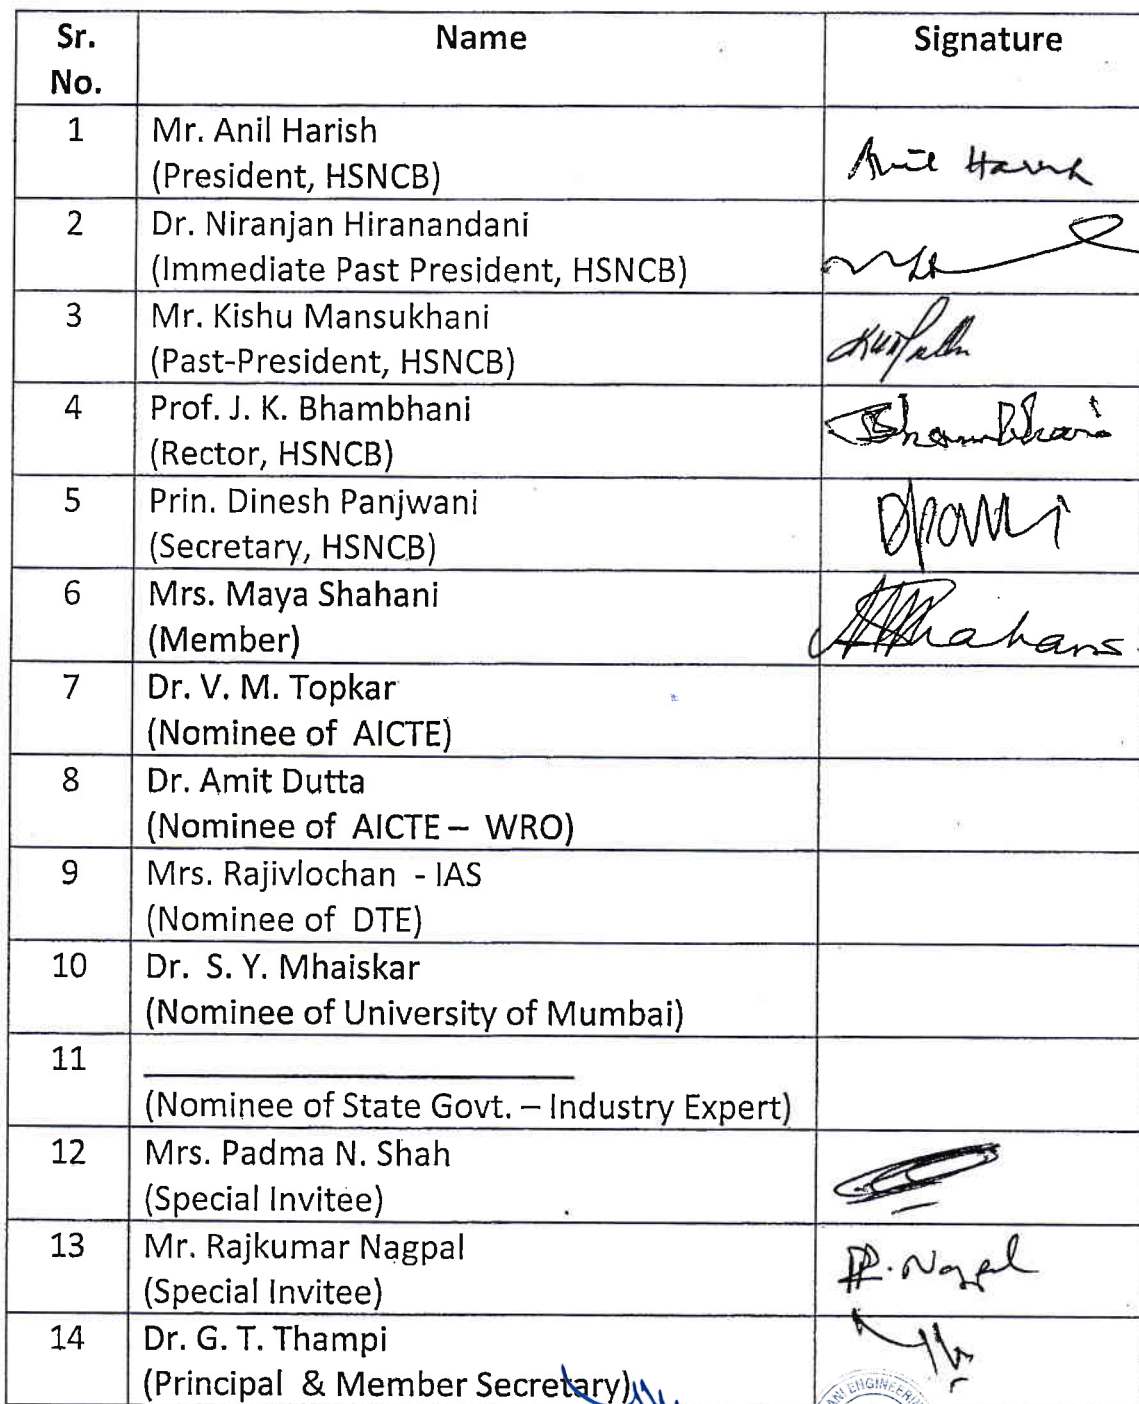 Sr. No. Name Signature
1 Mr. Anil Harish Anil Harish
(President, HSNCB)
2 Dr. Niranjan Hiranandani
(Immediate Past President, HSNCB)
3 Mr. Kishu Mansukhani
(Past-President, HSNCB)
4 Prof. J. K. Bhambhani Bhambhani
(Rector, HSNCB)
5 Prin. Dinesh Panjwani
(Secretary, HSNCB)
6 Mrs. Maya Shahani
(Member)
7 Dr. V. M. Topkar
(Nominee of AICTE)
8 Dr. Amit Dutta
(Nominee of AICTE – WRO)
9 Mrs. Rajivlochan - IAS
(Nominee of DTE)
10 Dr. S. Y. Mhaiskar
(Nominee of University of Mumbai)
11
(Nominee of State Govt. – Industry Expert)
12 Mrs. Padma N. Shah
(Special Invitee)
13 Mr. Rajkumar Nagpal R. Nagpal
(Special Invitee)
14 Dr. G. T. Thampi
(Principal & Member Secretary)